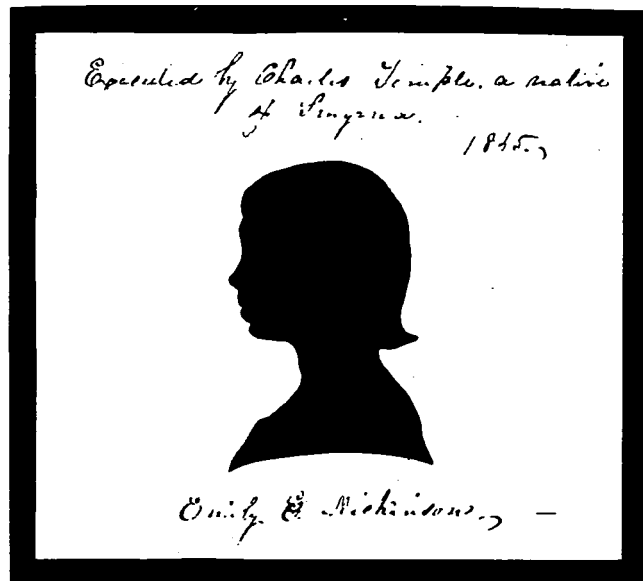 Executed by Charles Temple, a native
of Smyrna.
1845.
Emily E Dickinson.